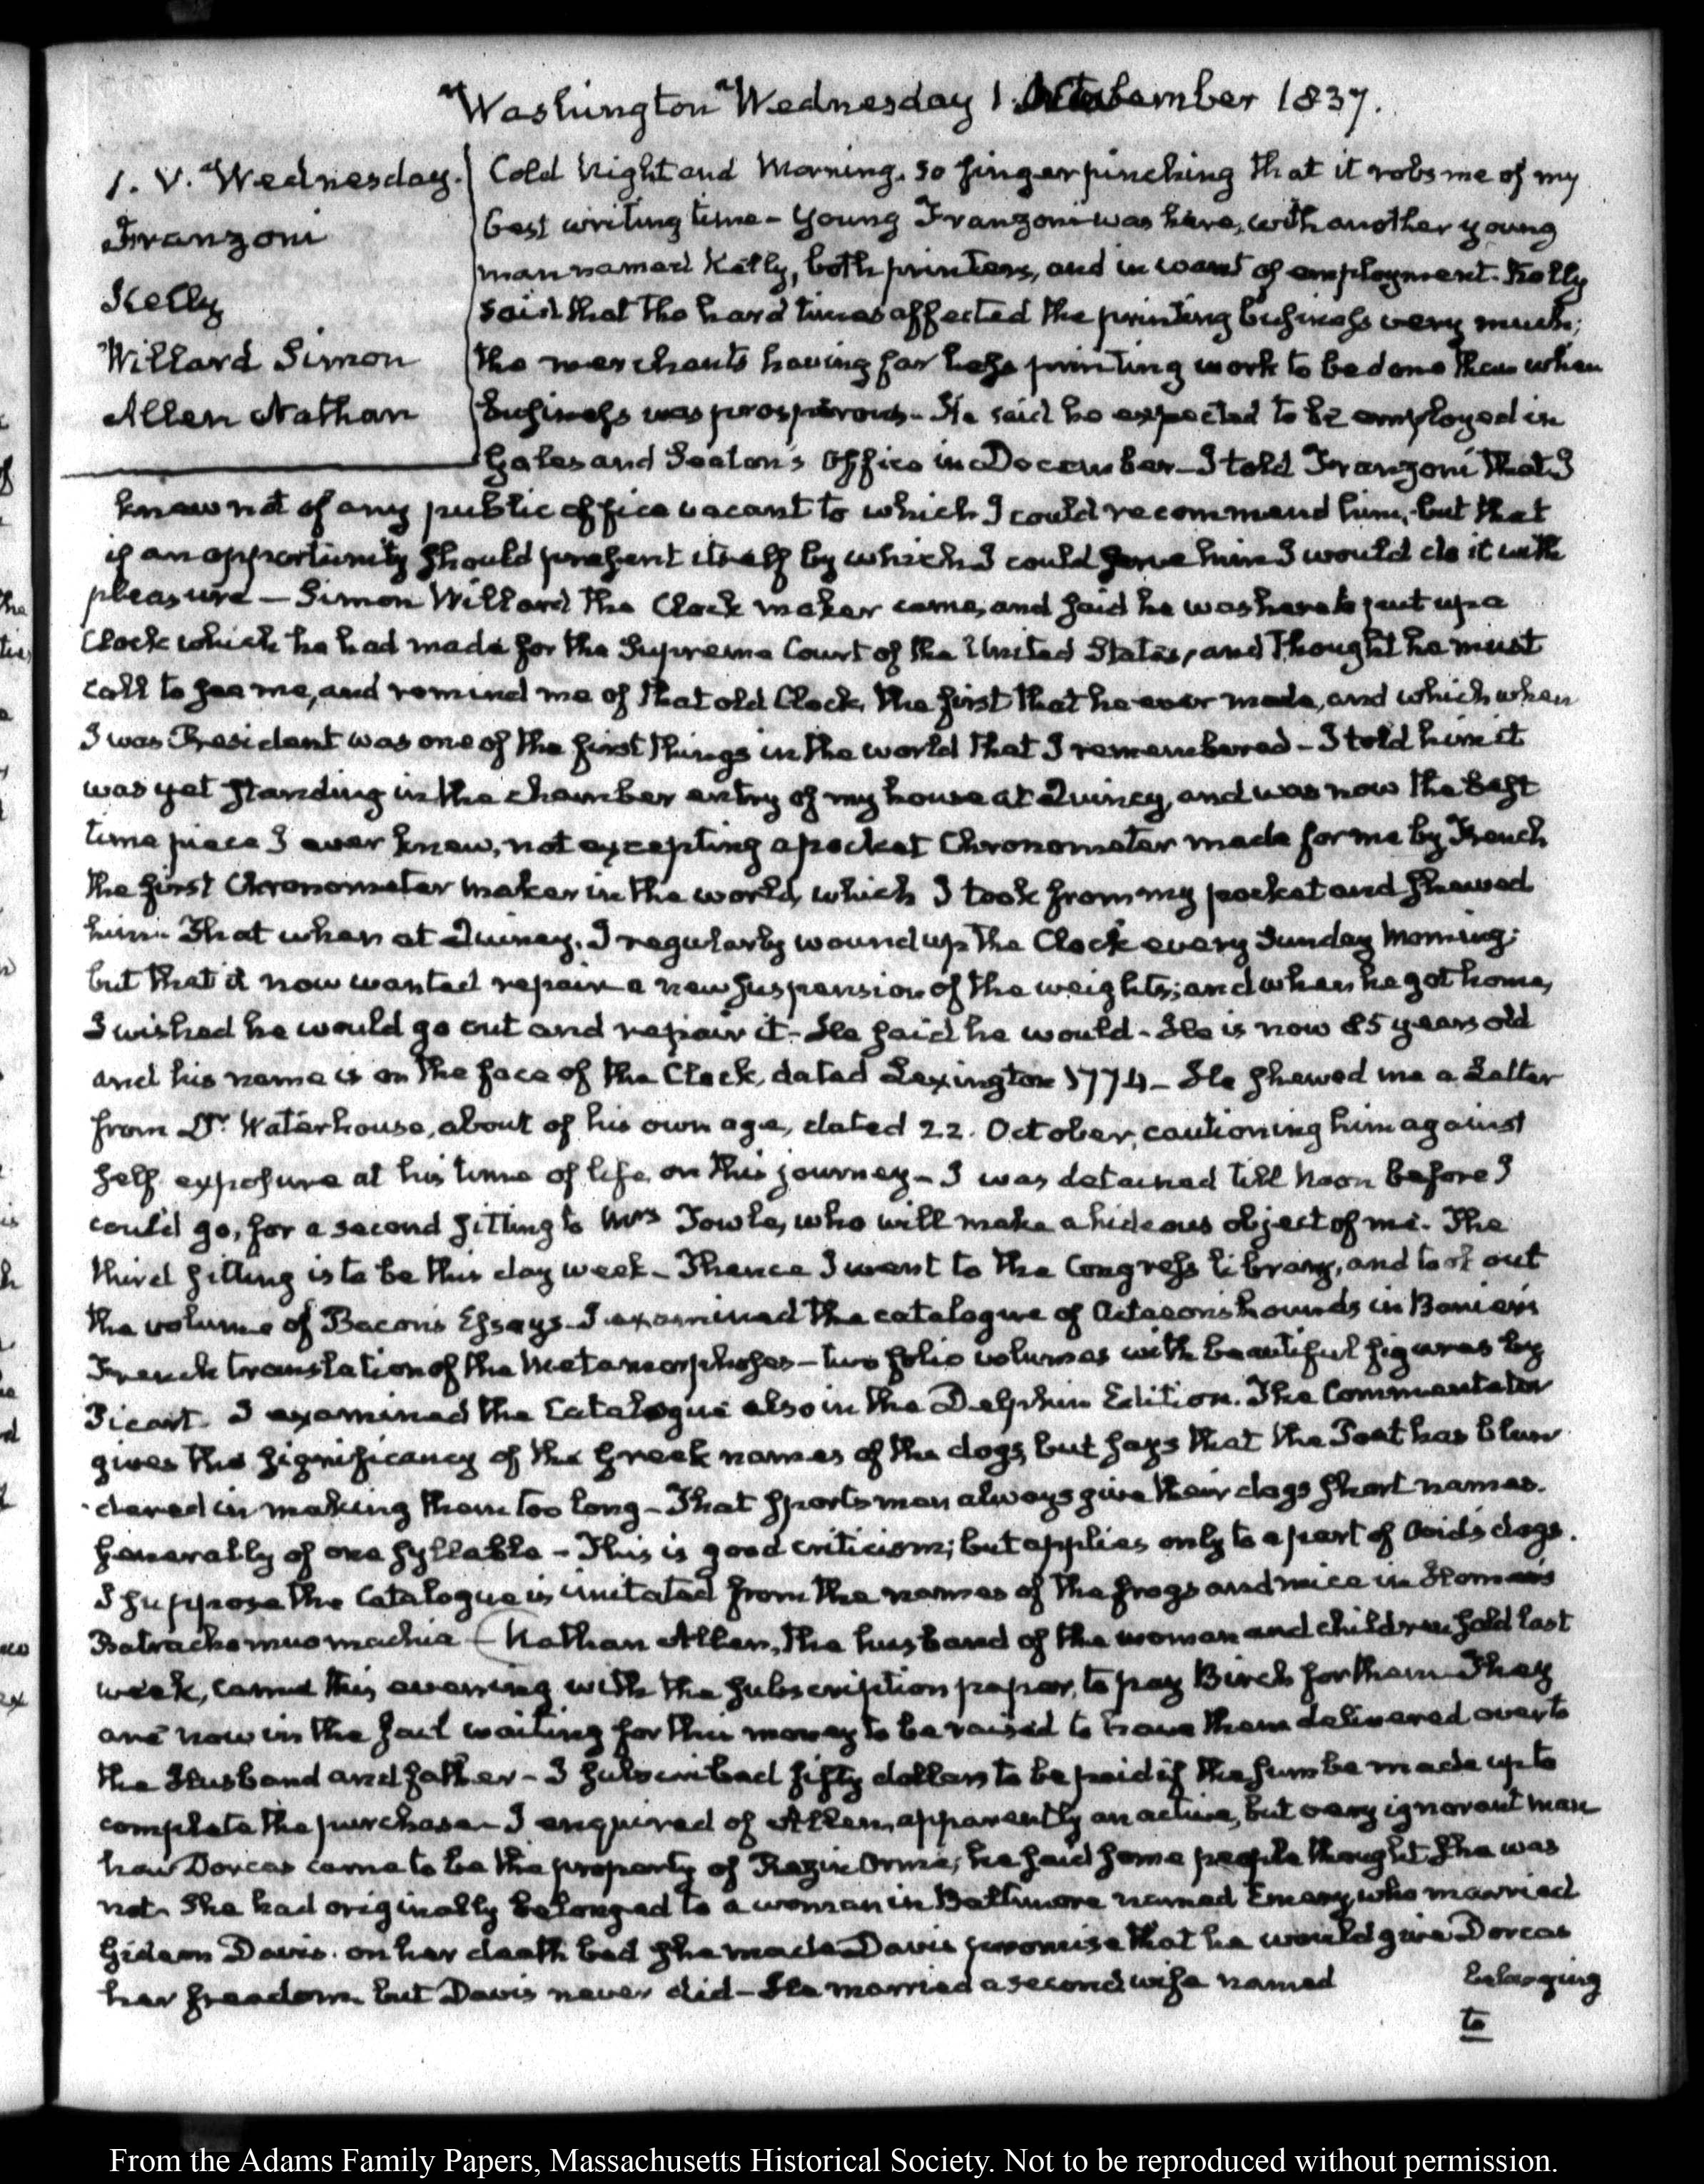 Washington Wednesday 1. November 1837.
1. V. Wednesday.
Franzoni
Kelly
Willard Simon
Allen Nathan
Cold Night and Morning, so finger pinching that it robs me of my
best writing time – Young Franzoni was here, with another young
man named Kelly, both printers, and in want of employment. Kelly
said that the hard times affected the printing business very much;
the merchants having far less printing work to be done than when
business was prosperous – He said he expected to be employed in
Gales and Seaton's Office in December – I told Franzoni that I
knew not of any public office vacant to which I could recommend him, but that
if an opportunity should present itself by which I could serve him I would do it with
pleasure – Simon Willard the Clock maker came, and said he was here to put up a
Clock which he had made for the Supreme Court of the United States, and thought he must
call to see me, and remind me of that old Clock, the first that he ever made, and which when
I was President was one of the first things in the world that I remembered – I told him it
was yet standing in the chamber entry of my house at Quincy, and was now the best
time piece I ever knew, not excepting a pocket Chronometer made for me by French
the first Chronometer maker in the world, which I took from my pocket and shewed
him. That when at Quincy, I regularly wound up the Clock every Sunday Morning;
but that it now wanted repair a new suspension of the weights; and when he got home,
I wished he would go out and repair it – He said he would – He is now 85 years old
and his name is on the face of the Clock, dated Lexington 1774 – He shewed me a Letter
from Dr. Waterhouse, about of his own age, dated 22. October, cautioning him against
self exposure at his time of life, on this journey – I was detained till Noon before I
could go, for a second sitting to Mrs Towle, who will make a hideous object of me. The
third sitting is to be this day week – Thence I went to the Congress library, and took out
the volume of Bacon's Essays – I examined the catalogue of Actaeon's hounds in Banier's
French translation of the Metamorphoses – two folio volumes with beautiful figures by
Picart. I examined the Catalogue also in the Delphin Edition. The Commentator
gives the significancy of the Greek names of the dogs, but says that the Poet has blun
dered in making them too long – That sportsmen always give their dogs short names.
generally of one syllable – This is good criticism; but applies only to a part of Ovid's dogs.
I suppose the Catalogue is imitated from the names of the frogs and mice in Homer's
Batrachomuomachia – (Nathan Allen, the husband of the woman and children sold last
week, came this evening with the subscription paper, to pay Birch for them They
are now in the jail waiting for this money to be raised to have them delivered over to
the Husband and father – I subscribed fifty dollars to be paid if the sum be made up to
complete the purchase – I enquired of Allen, apparently an active, but very ignorant man
how Dorcas came to be the property of Rezin Orme; he said some people thought she was
not. She had originally belonged to a woman in Baltimore named Emery, who married
Gideon Davis. on her death bed she made Davis promise that he would give Dorcas
her freedom but Davis never did – He married a second wife named belonging
to
From the Adams Family Papers, Massachusetts Historical Society. Not to be reproduced without permission.